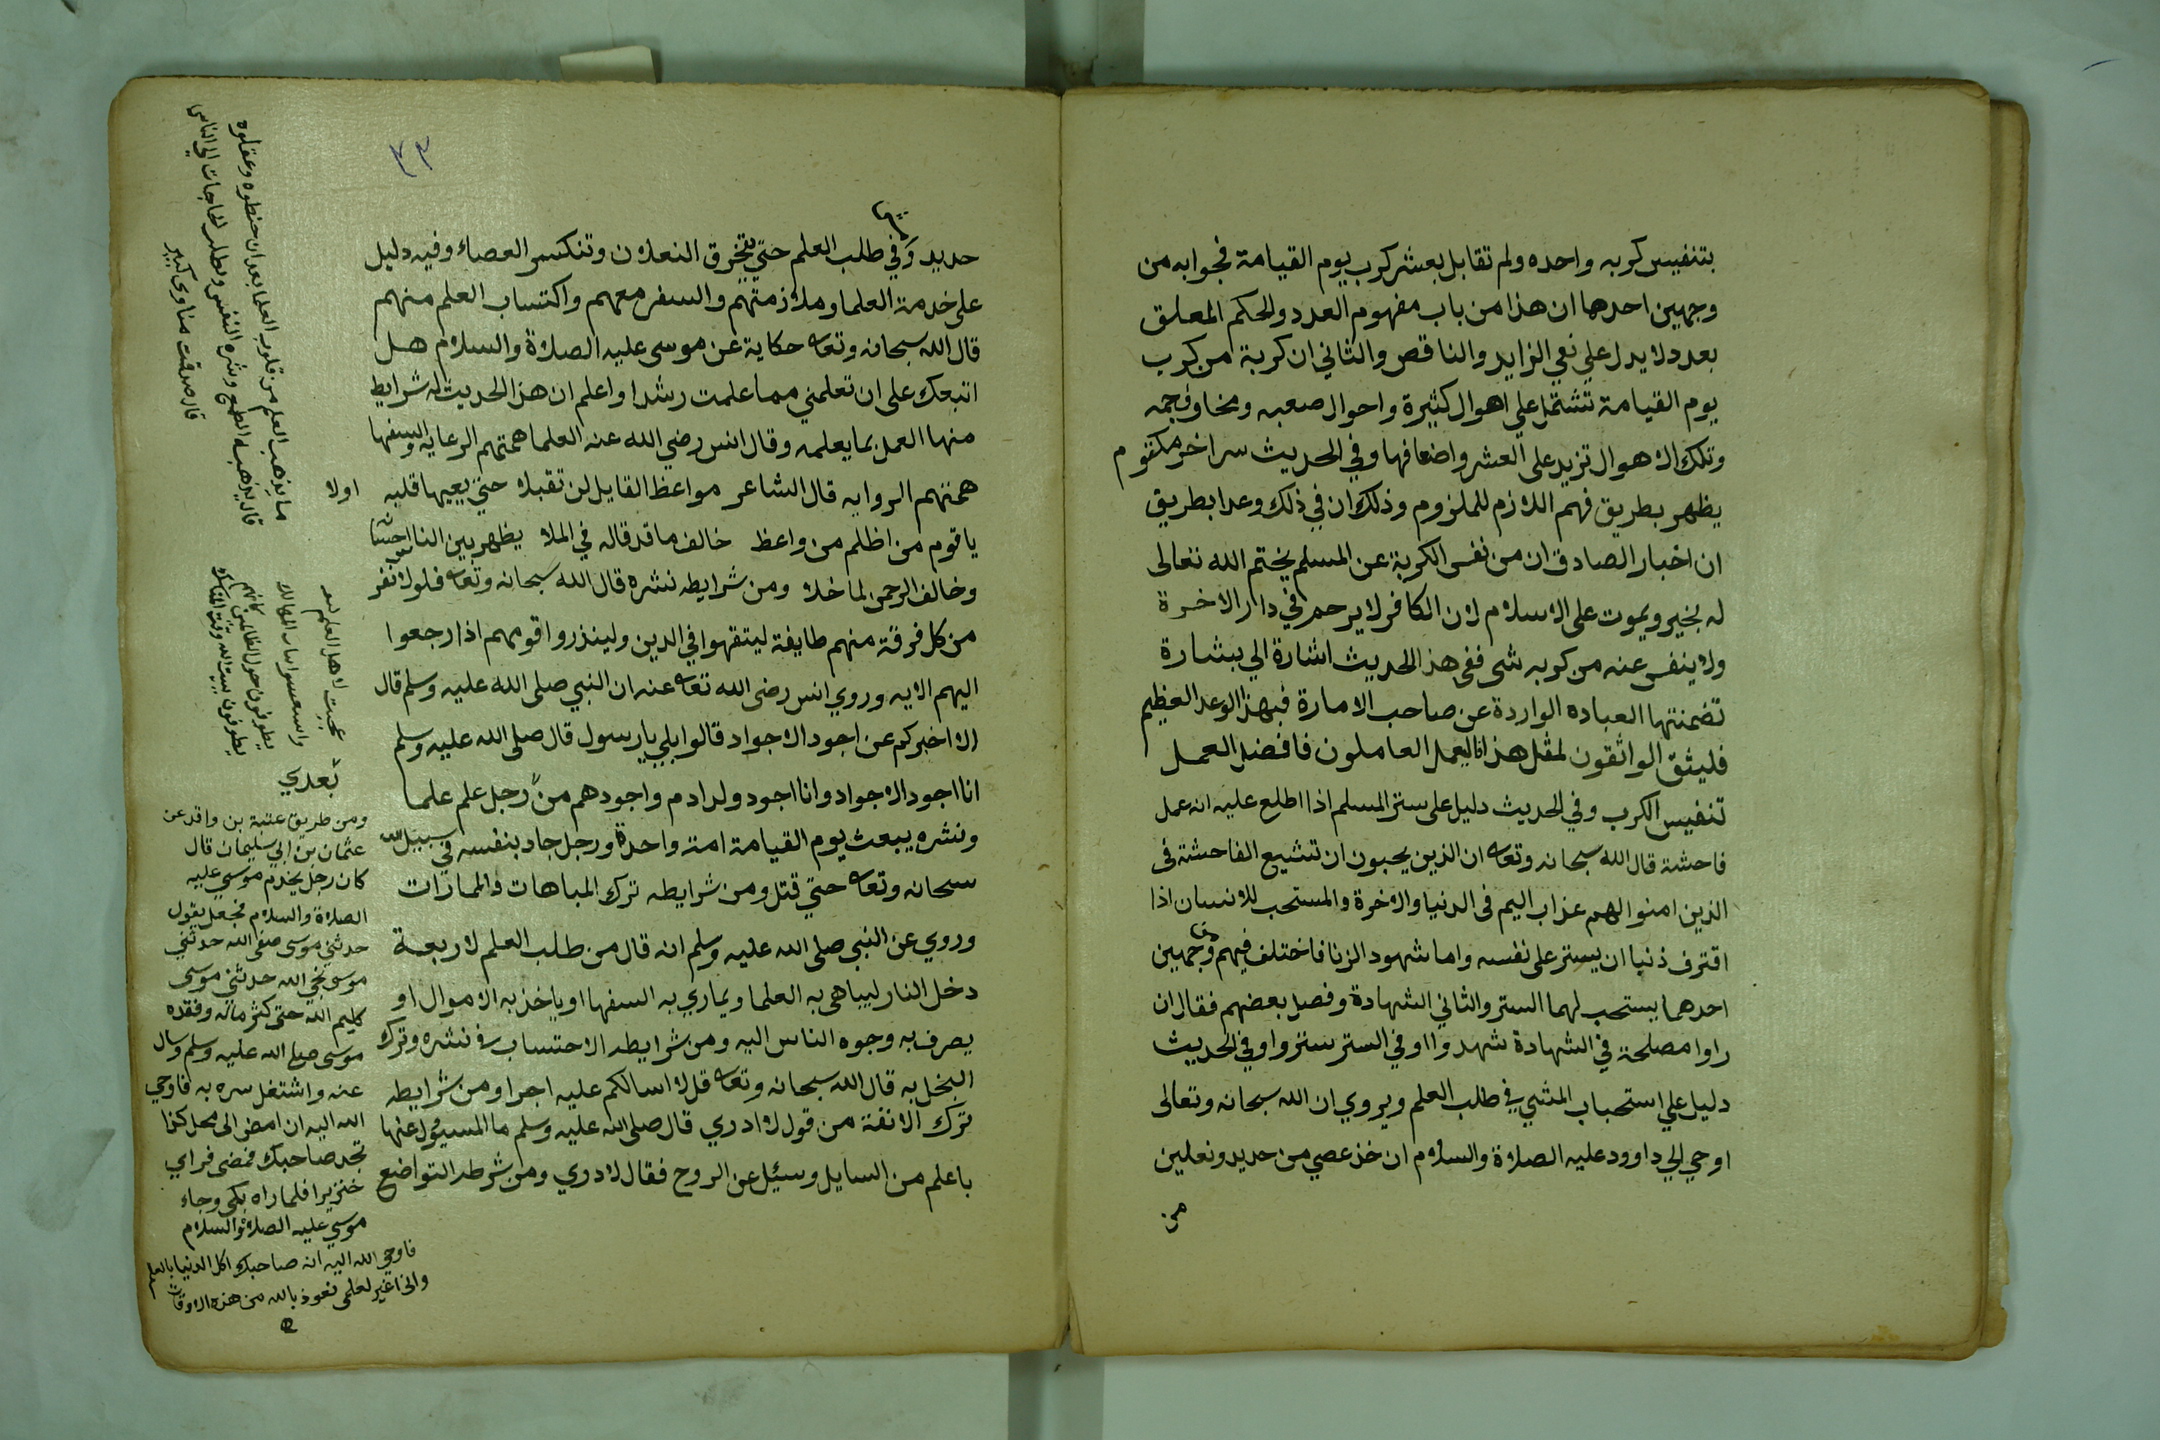 بتنفيس كربه واحده ولم تقابل بعشر كرب يوم القيامة فجوابه من
وجهين احدها ان هذا من باب مفهوم العدد والحكم المعلق
بعدد لا يدل على نفي الزايد والناقص والثاني ان كربة من كرب
يوم القيامة تشتمل على اهوال كثيرة واحوال صعبه ومخاوف جمه
وتلك الاهوال تزيد على العشر واضعافها وفي الحديث سر اخر مكتوم
يظهر بطريق فهم اللازم للملزوم وذلك ان في ذلك وعدا بطريق
ان اخبار الصادق ان من نفس الكربة عن المسلم يختم الله تعالى
له بخير ويموت على الاسلام لان الكافر لا يرحم في دار الاخرة
ولا ينفس عنه من كربه شي ففي هذ الحديث اشارة الي بشارة
تضمنتها العباده الواردة عن صاحب الامارة فبهذا الوعد العظيم
فليثق الواثقون لمثل هذا فاليعمل العاملون فافضل العمل
تنفيس الكرب وفي الحديث دليل على ستر المسلم اذا اطلع عليه انه عمل
فاحشة قال الله سبحانه وتعا ان الذين يحبون ان تشيع الفاحشة فى
الذين امنوا لهم عذاب اليم فى الدنيا والاخرة والمستحب للانسان اذا
اقترف ذنبا ان يستر على نفسه واما شهود الزنا فاختلف فيهم وجهين
احدهما يستحب لهما الستر والثاني الشهادة وفصل بعضهم فقال ان
راوا مصلحة في الشهادة شهدوا او في الستر ستروا وفي الحديث
دليل على استحباب المشي في طلب العلم ويروي ان الله سبحانه وتعالى
اوحي الي داوود عليه الصلاة والسلام ان خذ عصي من حديد ونعلين
من
٣٣
حديد وفي طلب العلم حتي تتخرق النعلان وتنكسر العصاء وفيه دليل
على خدمة العلما وملازمتهم والسفر معهم واكتساب العلم منهم
قال الله سبحانه وتعا حكاية عن موسى عليه الصلاة والسلام هل
اتبعك على ان تعلمني مما علمت رشدا واعلم ان هذ الحديث له شرايط
منها العمل بما يعلمه وقال انس رضي الله عنه العلما همتهم الرعايه والسفها
همتهم الروايه قال الشاعر مواعظ القايل لن تقبلا حتي يعيها قلبه
اولا
يا قوم من اظلم من واعظ خالف ما قد قاله في الملا يظهر بين الناس
وخالف الرحمن لما خلا ومن شرايطه نشره قال الله سبحانه وتعا فلولا نفر
من كل فرقة منهم طايفة ليتفقهوا في الدين ولينذروا قومهم اذا رجعوا
اليهم الايه وروي انس رضي الله تعا عنه ان النبي صلى الله عليه وسلم قال
الا اخبركم عن اجود الاجواد قالوا بلي يا رسول قال صلى الله عليه وسلم
انا اجود الاجواد وانا اجود ولد ادم واجودهم من رجل علم علما
بعدي
ونشره يبعث يوم القيامة امة واحدة ورجل جاد بنفسه في سبيل الله
سبحانه وتعا حتي قتل ومن شرايطه ترك المباهات والممارات
وروي عن النبي صلى الله عليه وسلم انه قال من طلب العلم لاربعة
دخل النار ليباهي به العلما ويماري به السفها او ياخذ به الاموال او
يصرف به وجوه الناس اليه ومن شرايطه الاحتساب في نشره وترك
البخل به قال الله سبحانه وتعا قل لا اسالكم عليه اجرا ومن شرايطه
ترك الانفة من قول لا ادري قال صلى الله عليه وسلم ما المسيول عنها
باعلم من السايل وسئل عن الروح فقال لا دري ومن شرطه التواضع
ما يذهب العلم من قلوب العلما بعد ان حفظوه وعقلوه
قال يذهبه الطمع وشره النفس وطلب الحاجات الي الناس
قال صدقت مناوى كبير
عجبت لاهل العلم
يطوفون حول الظالمين كانهم
يطوفون بيت الله وقت
ومن طريق عتبة بن واقد عن
عثمان بن ابي سليمان قال
كان رجل يخدم موسي عليه
الصلاة والسلام فجعل يقول
حدثني موسى صفي الله حدثني
موسى نجي الله حدثني موسى
كليم الله حتى كثر ماله وفقده
موسى صلى الله عليه وسلم وسال
عنه واشتغل سره به فاوحي
الله اليه ان امض الى محل كذا
تجد صاحبك فمضى فراي
خنزيرا فلما راه بكى وجاء
موسي عليه الصلاة والسلام
فاوحي الله اليه انه صاحبك اكل الدنيا بالعلم
نعوذ بالله من هذه